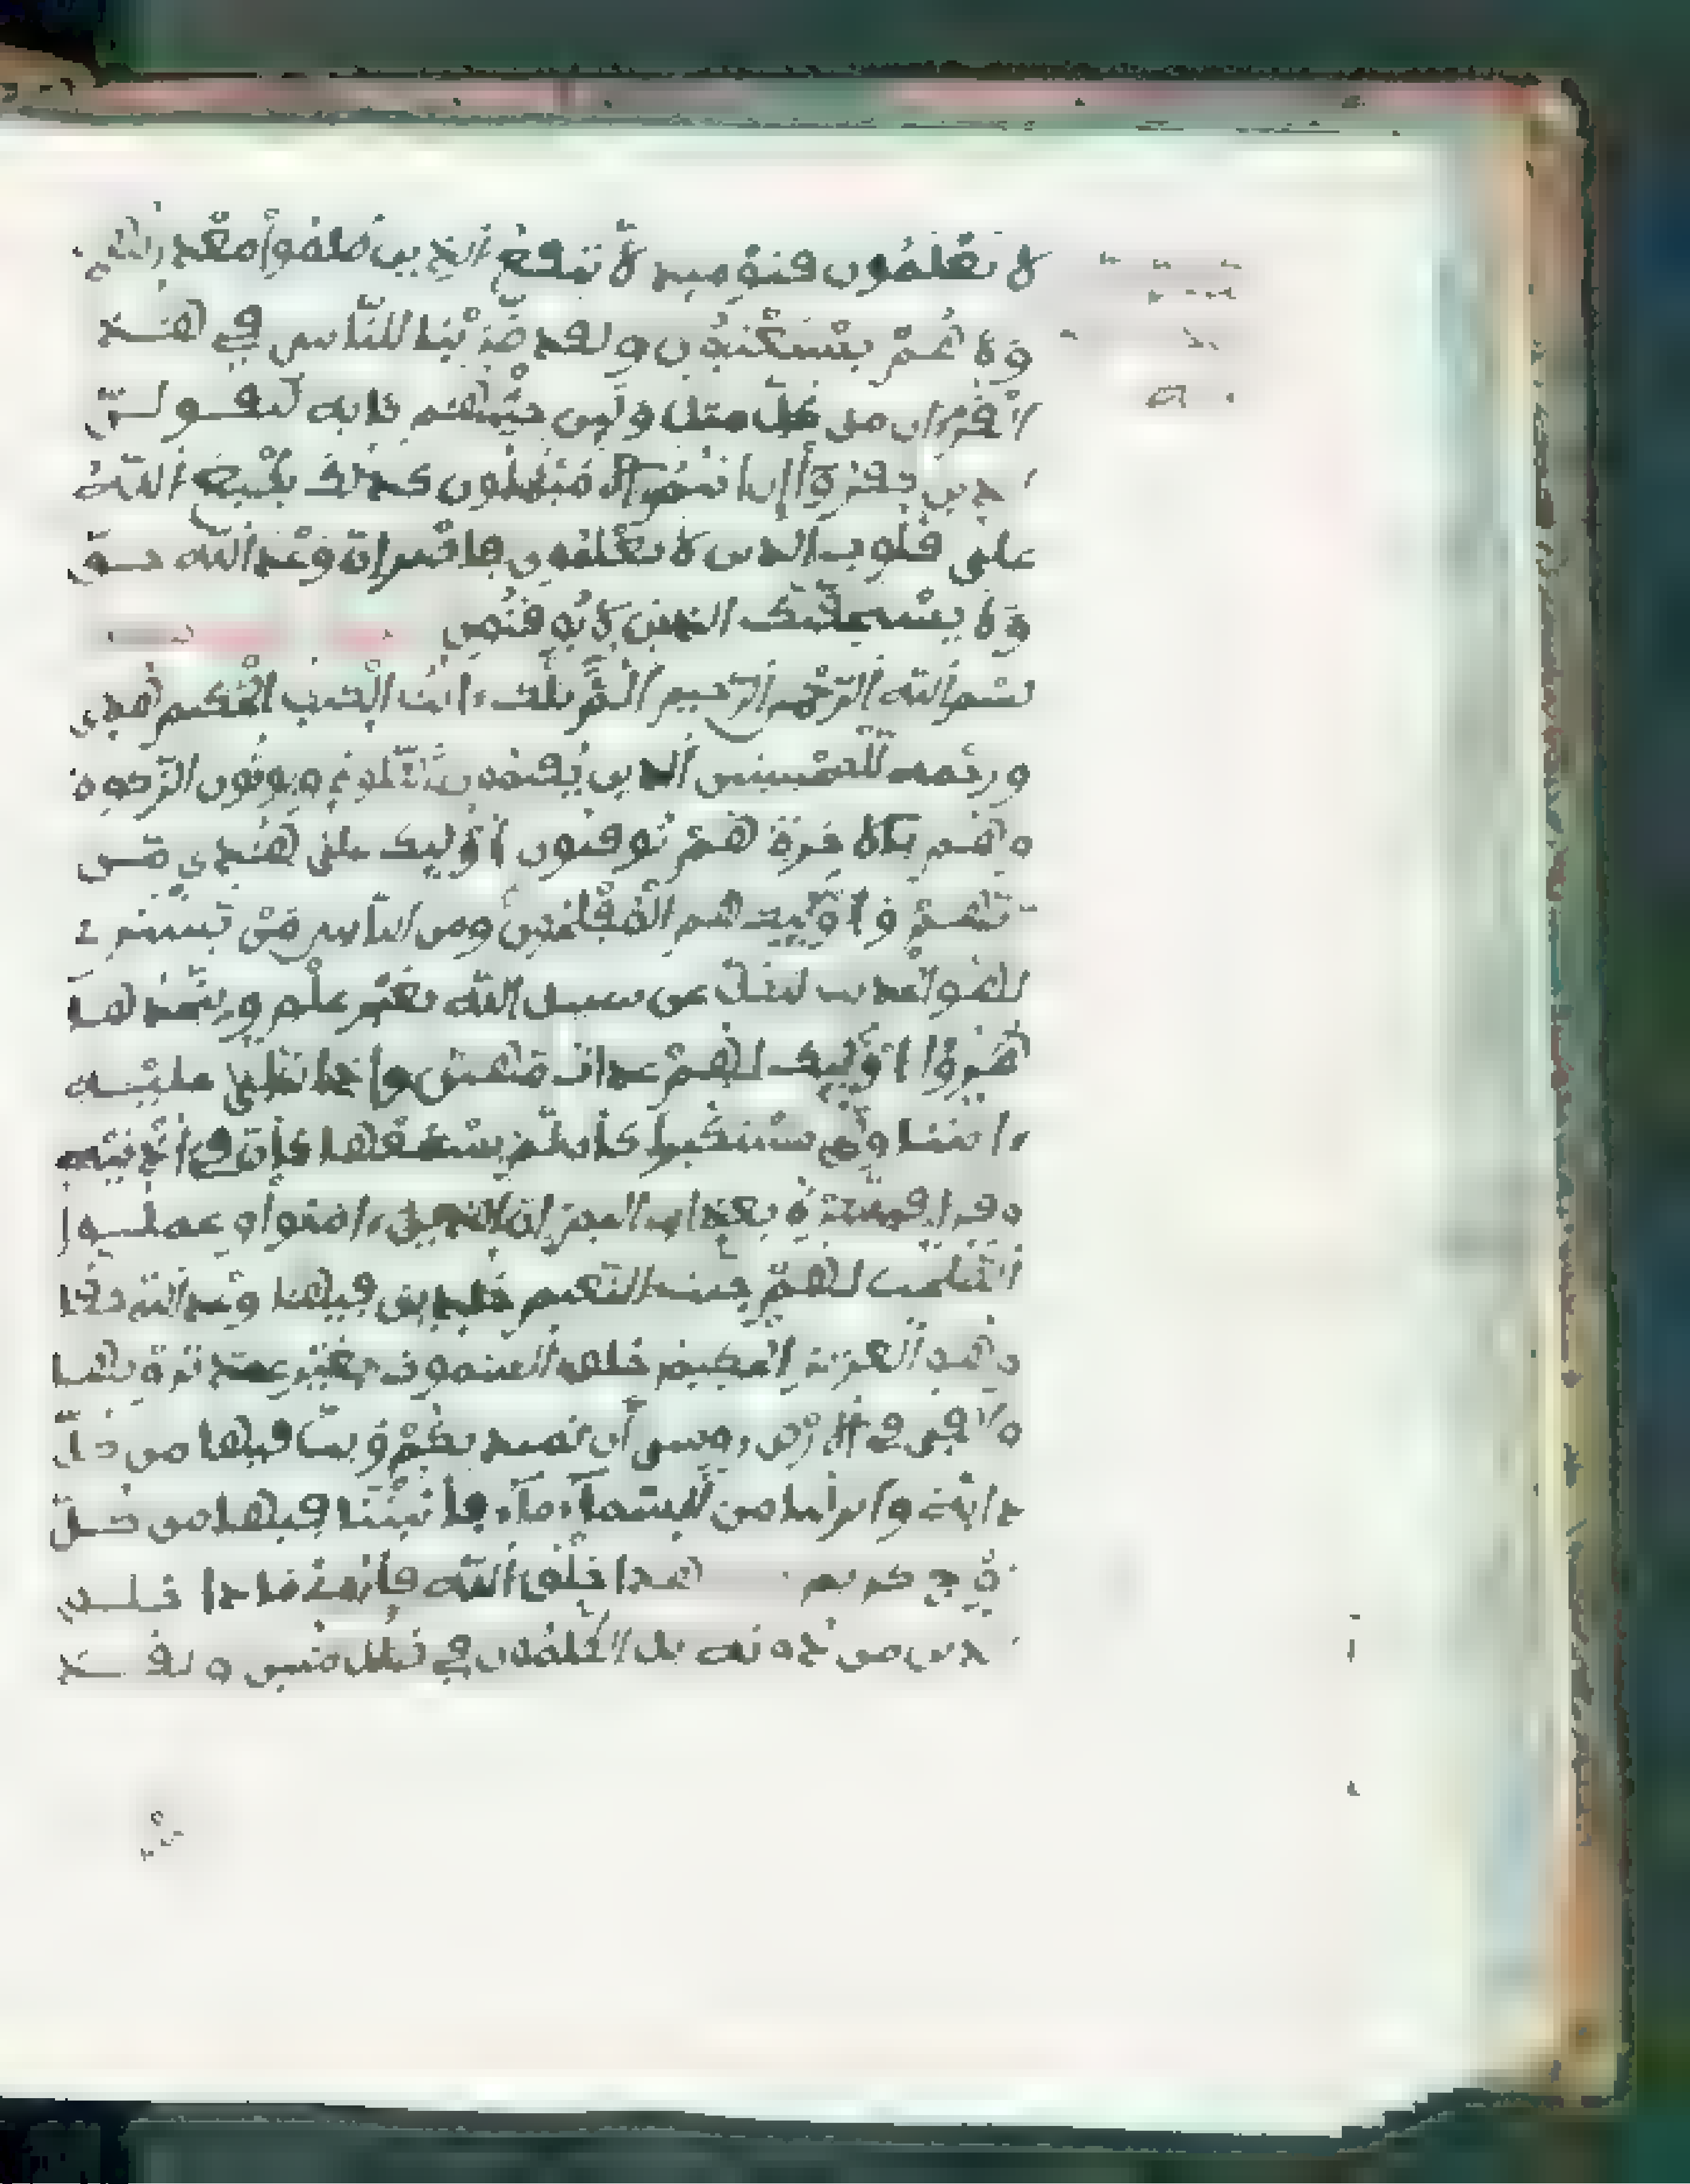 لا تعلمون فيوميذ لا تنفع الذين ظلموا معذرتهم
ولا هم يستعتبون ولقد ضربنا للناس في هذا
القرءان من كل مثل ولين جيتهم بئاية ليقولن
الذين كفروا إن انتم إلا مبطلون كذلك يطبع الله
على قلوب الذين لا يعلمون فاصبر ان وعد الله حق
ولا يستخفنك الذين لا يوقنون
بسم الله الرحمن الرحيم الم تلك ءايت الكتب الحكيم هدى
ورحمة للمحسنين الذين يقيمون الصلوة ويوتون الزكوة
وهم بالاخرة هم يوقنون أوليك على هدى من
ربهم وأوليك هم المفلحون ومن الناس من يشتري
لهو الحديث ليضل عن سبيل الله بغير علم ويتخذها
هزوا أوليك لهم عذاب مهين وإذا تتلى عليه
ءايتنا ولى مستكبرا كأن لم يسمعها كأن في أذنيه
وقرا فبشره بعذاب اليم إن الذين ءامنوا وعملوا
الصلحت لهم جنت النعيم خلدين فيها وعد الله حقا
وهو العزيز الحكيم خلق السموت بغير عمد ترونها
والقى في الارض روسي أن تميد بكم وبث فيها من كل
دابة وانزلنا من السماء ماء فأنبتنا فيها من كل
زوج كريم هذا خلق الله فأروني ماذا خلق
الذين من دونه بل الظلمون في ضلل مبين ولقد